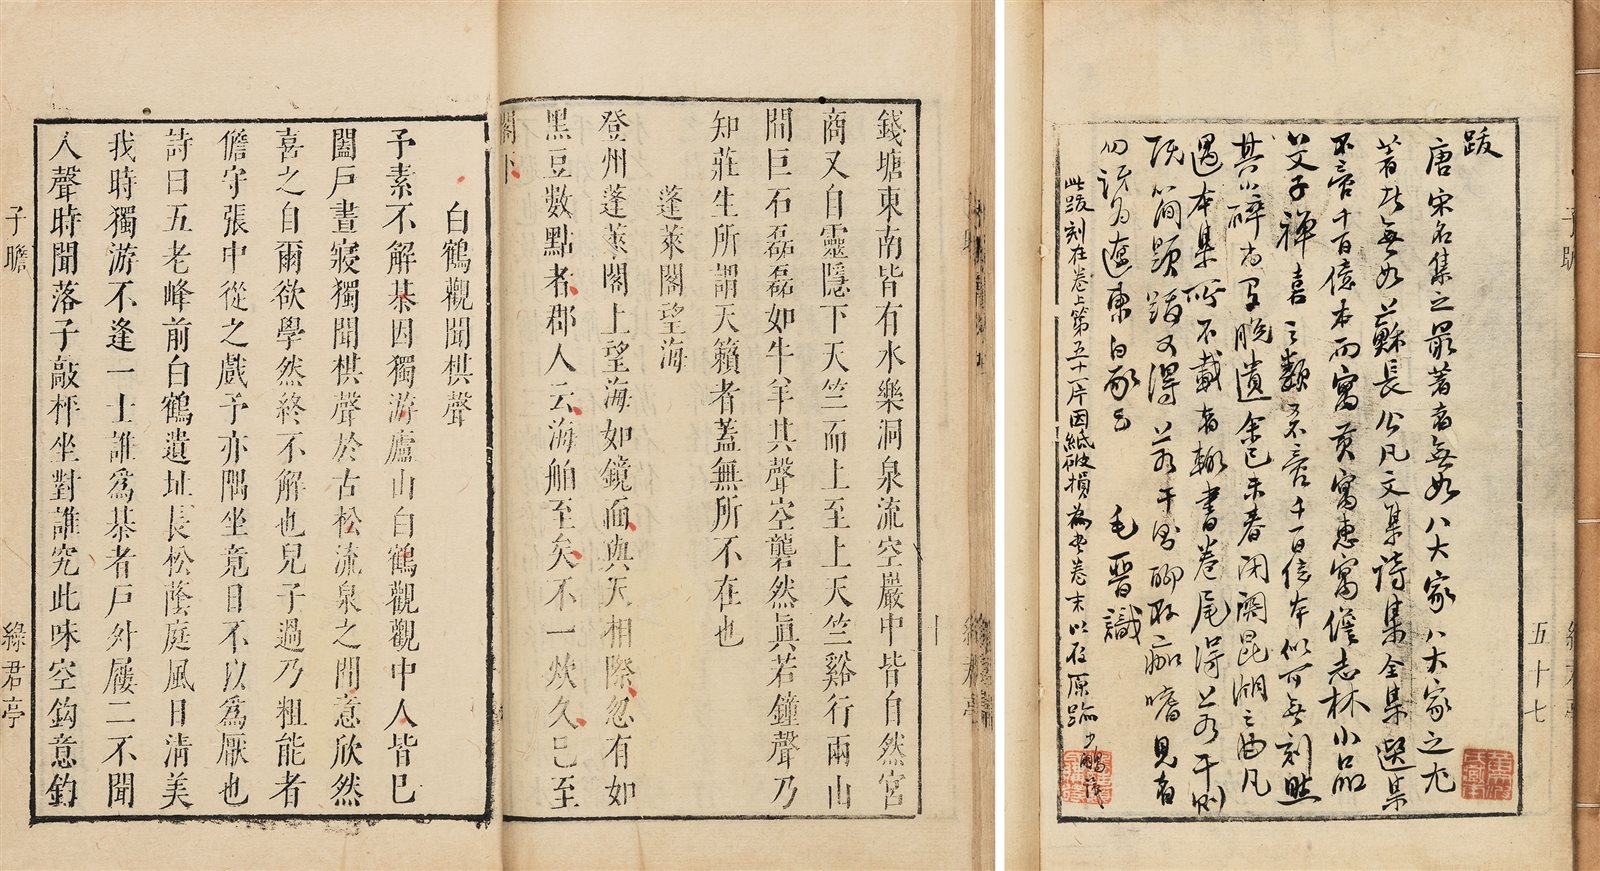 錢塘東南皆有水樂洞泉流空巖中皆自然宮
商又自靈隱下天竺而上至上天竺谿行兩山
間巨石磊磊如牛羊其聲空礱然眞若鐘聲乃
知莊生所謂天籟者蓋無所不在也
蓬萊閣望海
登州蓬萊閣上望海如鏡面與天相際忽有如
黑豆數點者郡人云海舶至矣不一炊久已至
閣下
白鶴觀聞棋聲
予素不解棊因獨游廬山白鶴觀觀中人皆巳
闔戶晝寢獨聞棋聲於古松流泉之間意欣然
喜之自爾欲學然終不解也兒子過乃粗能者
儋守張中從之戲予亦隅坐竟日不以爲厭也
詩曰五老峰前白鶴遺址長松蔭庭風日清美
我時獨游不逢一士誰爲棊者戶外屨二不聞
人聲時聞落子敲枰坐對誰究此味空鈎意釣
子瞻 綠君亭
五十七
跋
唐宋名集之最著者無如八大家八大家之尤
著者無如蘇長公凡文集詩集全集選集
不啻千百億本而寓黃寓惠寓儋志林小品
艾子禪喜之類又不啻千百億本似可無刻然
其小碎尚有脫遺余己未春閉關昆湖之曲凡
遇本集所不載者輒書卷尾得若干則
既簡題跋又得若干則聊存痂嗜見者
勿訝爲遼東白豕云 毛晉識
此跋刻在卷上第五十一 因紙破損為書卷末以存原跡 少鵬識